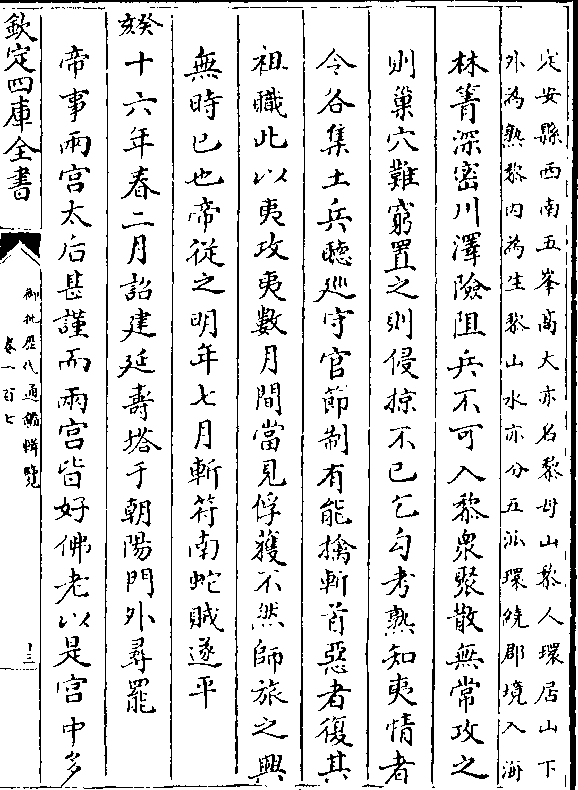 定安縣西南五峯髙大亦名黎母山黎人環居山下
外為熟黎内為生黎山水亦分五派環繞郡境入海
林箐深密川澤險阻兵不可入黎衆聚散無常攻之
則巢穴難窮置之則侵掠不已乞勾考熟知夷情者
令各集土兵聴廵守官節制有能擒斬首惡者復其
祖職此以夷攻夷數月間當見俘獲不然師旅之興
無時已也帝從之明年七月斬符南蛇賊遂平
癸亥
十六年春二月詔建延壽塔于朝陽門外尋罷
帝事兩宫太后甚謹而兩宫皆好佛老以是宫中多
欽定四庫全書
御批歴代通鑑輯覽
卷一百七
十三